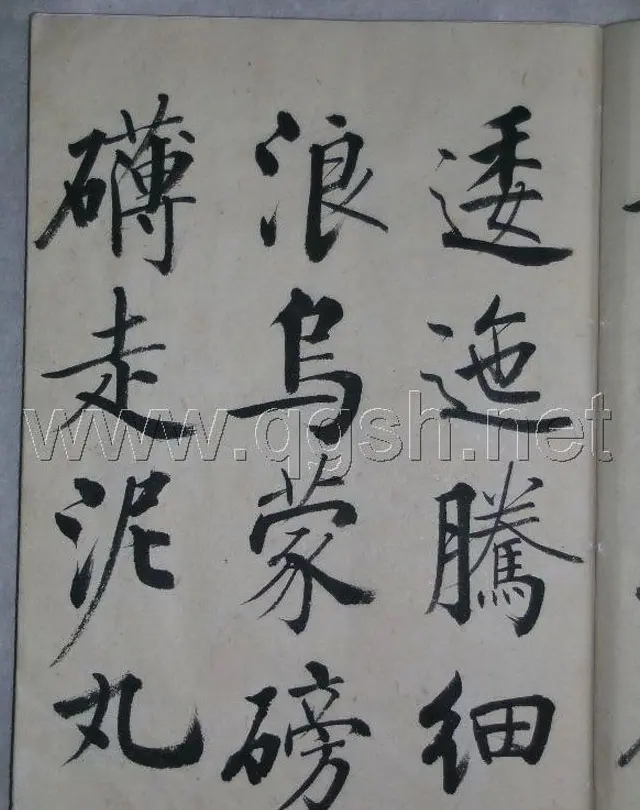 逶迤騰細
浪烏蒙磅
礴走泥丸
www.qgsh.net